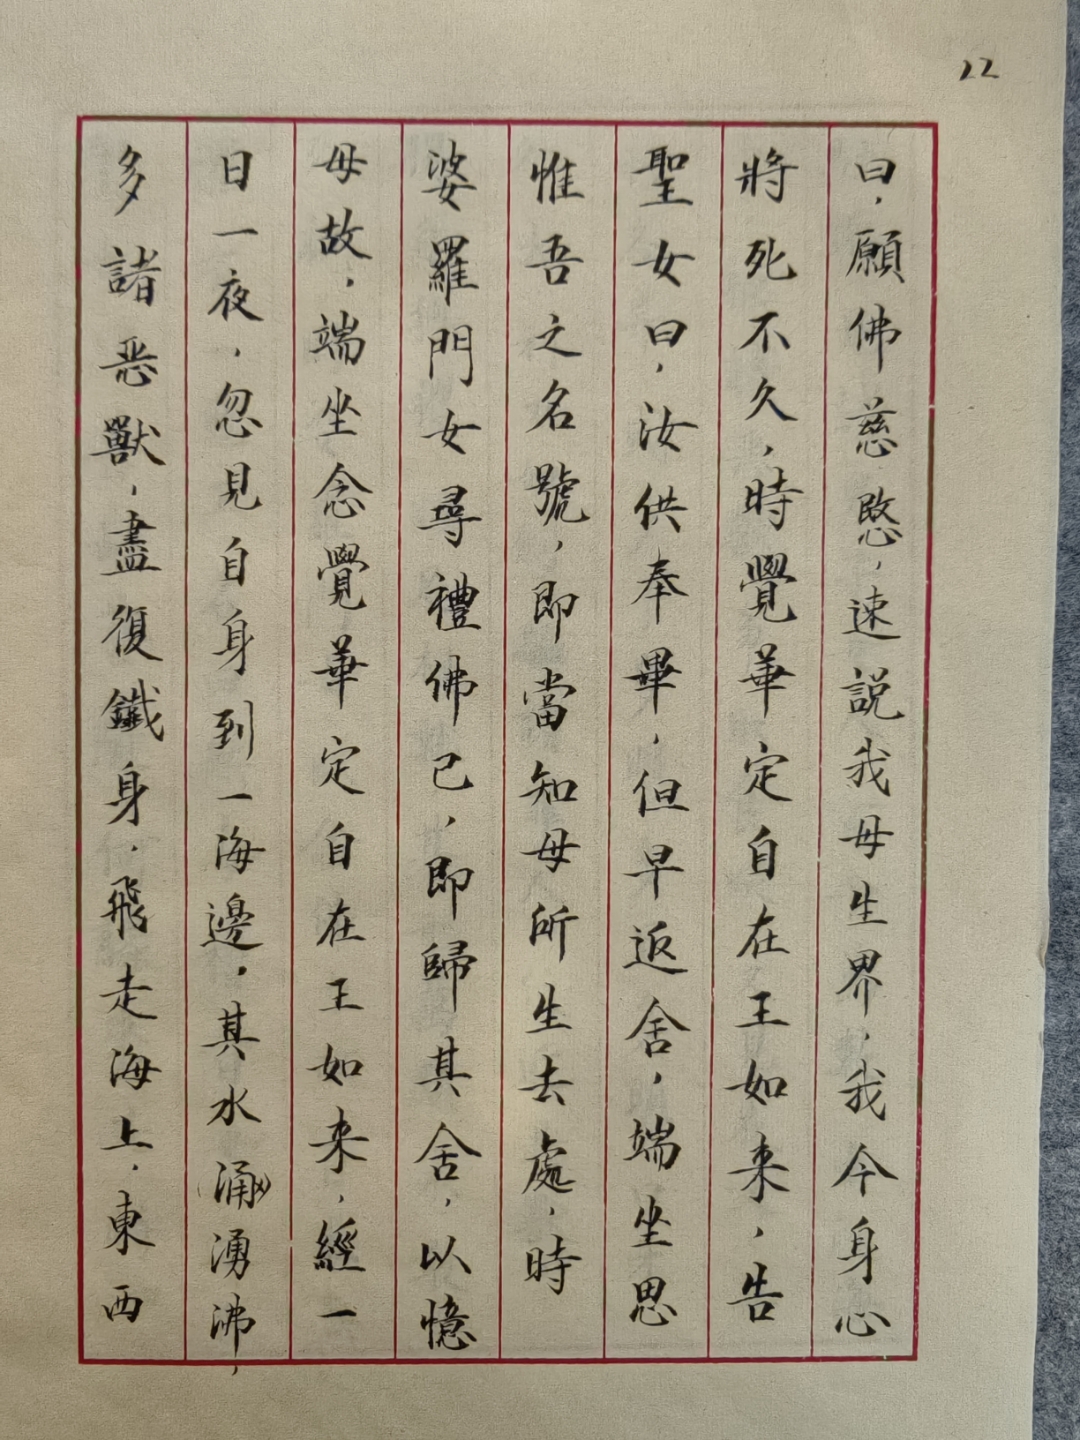 22
曰，願佛慈愍，速説我母生界，我今身心
將死不久，時覺華定自在王如来，告
聖女曰，汝供奉畢，但早返舍，端坐思
惟吾之名號，即當知母所生去處，時
婆羅門女尋禮佛已，即歸其舍，以憶
母故，端坐念覺華定自在王如来，經一
日一夜，忽見自身到一海邊，其水涌湧沸，
多諸恶獸，盡復鐵身，飛走海上，東西